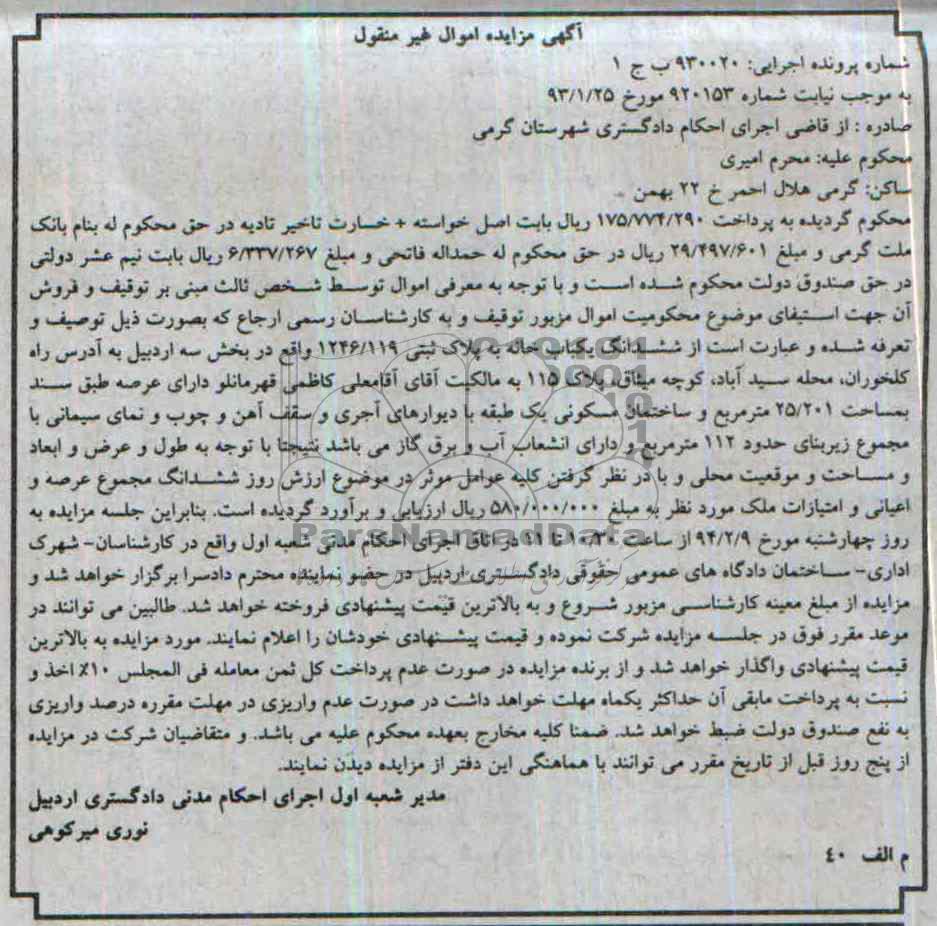 آگهی مزایده اموال غیر منقول
شماره پرونده اجرایی: ۹۳۰۰۲۰ ب ج ۱
به موجب نیابت شماره ۹۲۰۱۵۳ مورخ ۹۳/۱/۲۵
صادره : از قاضی اجرای احکام دادگستری شهرستان گرمی
محکوم علیه: محرم امیری
ساکن: گرمی هلال احمر خ ۲۲ بهمن
محکوم گردیده به پرداخت ۱۷۵/۷۷۴/۲۹۰ ریال بابت اصل خواسته + خسارت تاخیر تادیه در حق محکوم له بنام بانک
ملت گرمی و مبلغ ۲۹/۴۹۷/۶۰۱ ریال در حق محکوم له حمداله فاتحی و مبلغ ۶/۳۳۷/۲۶۷ ریال بابت نیم عشر دولتی
در حق صندوق دولت محکوم شده است و با توجه به معرفی اموال توسط شخص ثالث مبنی بر توقیف و فروش
آن جهت استیفای موضوع محکومیت اموال مزبور توقیف و به کارشناسان رسمی ارجاع که بصورت ذیل توصیف و
تعرفه شده و عبارت است از ششدانگ یکباب خانه به پلاک ثبتی ۱۲۴۶/۱۱۹ واقع در بخش سه اردبیل به آدرس راه
کلخوران، محله سید آباد، کوچه میثاق، پلاک ۱۱۵ به مالکیت آقای آقامعلی کاظمی قهرمانلو دارای عرصه طبق سند
بمساحت ۲۵/۲۰۱ مترمربع و ساختمان مسکونی یک طبقه با دیوارهای آجری و سقف آهن و چوب و نمای سیمانی با
مجموع زیربنای حدود ۱۱۲ مترمربع و دارای انشعاب آب و برق گاز می باشد نتیجتا با توجه به طول و عرض و ابعاد
و مساحت و موقعیت محلی و با در نظر گرفتن کلیه عوامل موثر در موضوع ارزش روز ششدانگ مجموع عرصه و
اعیانی و امتیازات ملک مورد نظر به مبلغ ۵۸۰/۰۰۰/۰۰۰ ریال ارزیابی و برآورد گردیده است. بنابراین جلسه مزایده به
روز چهارشنبه مورخ ۹۴/۲/۹ از ساعت ۱۰/۳۰ تا ۱۱ در اتاق اجرای احکام مدنی شعبه اول واقع در کارشناسان- شهرک
اداری- ساختمان دادگاه های عمومی حقوقی دادگستری اردبیل در حضو نماینده محترم دادسرا برگزار خواهد شد و
مزایده از مبلغ معینه کارشناسی مزبور شروع و به بالاترین قیمت پیشنهادی فروخته خواهد شد. طالبین می توانند در
موعد مقرر فوق در جلسه مزایده شرکت نموده و قیمت پیشنهادی خودشان را اعلام نمایند. مورد مزایده به بالاترین
قیمت پیشنهادی واگذار خواهد شد و از برنده مزایده در صورت عدم پرداخت کل ثمن معامله فی المجلس ۱۰٪ اخذ و
نسبت به پرداخت مابقی آن حداکثر یکماه مهلت خواهد داشت در صورت عدم واریزی در مهلت مقرره درصد واریزی
به نفع صندوق دولت ضبط خواهد شد. ضمنا کلیه مخارج بعهده محکوم علیه می باشد. و متقاضیان شرکت در مزایده
از پنج روز قبل از تاریخ مقرر می توانند با هماهنگی این دفتر از مزایده دیدن نمایند.
مدیر شعبه اول اجرای احکام مدنی دادگستری اردبیل
نوری میرکوهی
م الف ۴۰
ParsNamadData